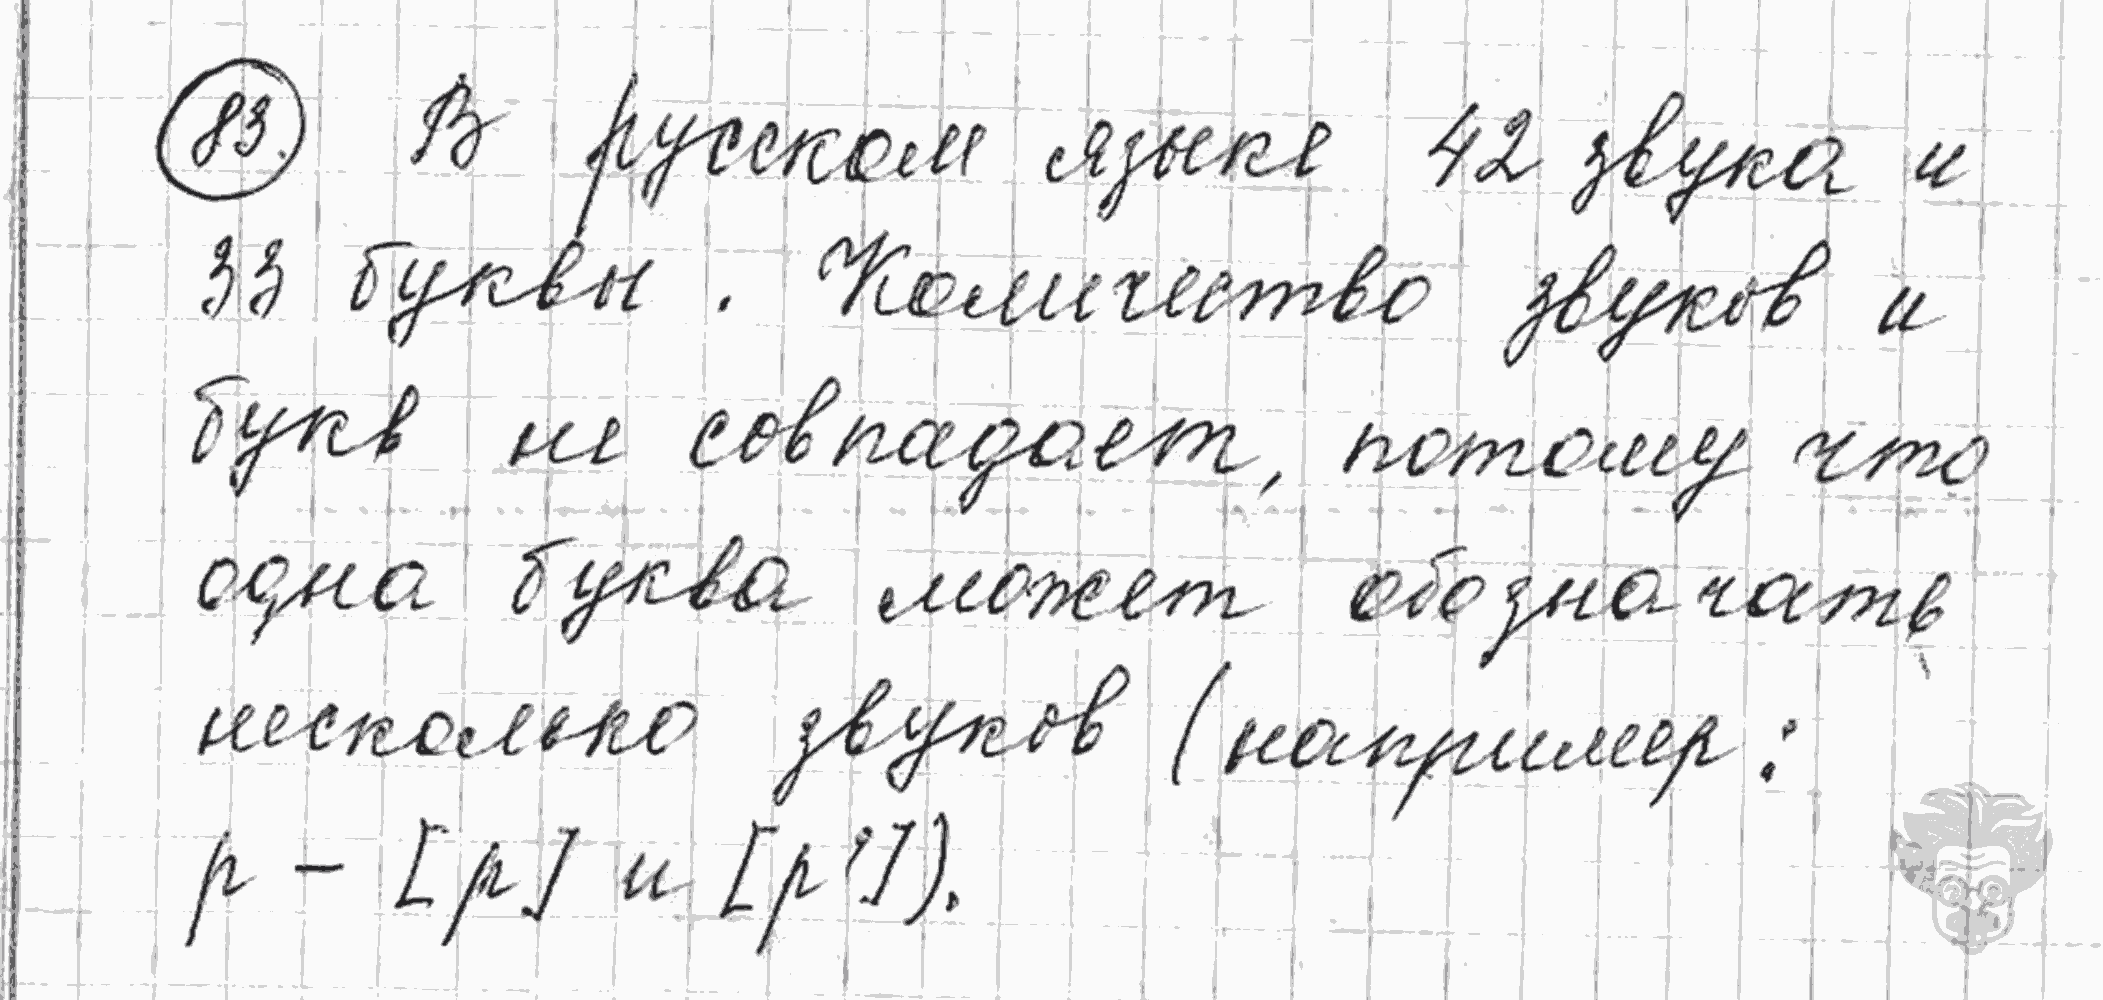 83. В русском языке 42 звука и
33 буквы. Количество звуков и
букв не совпадает, потому что
одна буква может обозначать
несколько звуков (например:
р – [р] и [р']).